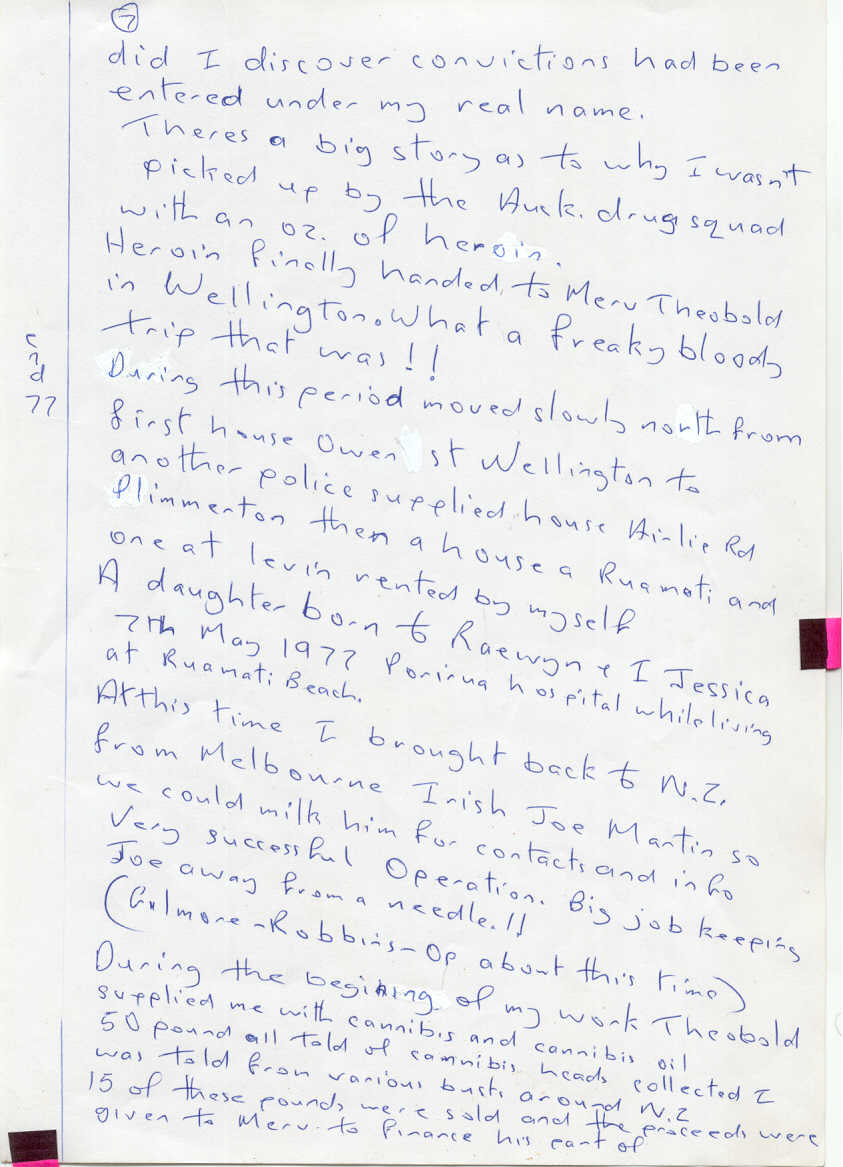 7
did I discover convictions had been
entered under my real name.
Theres a big story as to why I wasn't
picked up by the Auck. drug squad
with an oz. of heroin.
Heroin finally handed to Merv Theobold
in Wellington. What a freaky bloody
trip that was!!
End
77
During this period moved slowly north from
first house Owen st Wellington to
another police supplied house Airlie Rd
Plimmerton then a house a Ruamati and
one at levin rented by myself
A daughter born to Raewyn + I Jessica
7th May 1977 Porirua hospital while living
at Ruamati Beach.
At this time I brought back to N.Z.
from Melbourne Irish Joe Martin so
we could milk him for contacts and info
Very successful Operation. Big job keeping
Joe away from a needle.!!
(Gilmore-Robbins-Op about this time)
During the begining of my work Theobold
supplied me with cannibis and cannibis oil
50 pound all told of cannibis heads collected I
was told from various busts around N.Z
15 of these pounds were sold and the proceeds were
given to Merv. to finance his part of